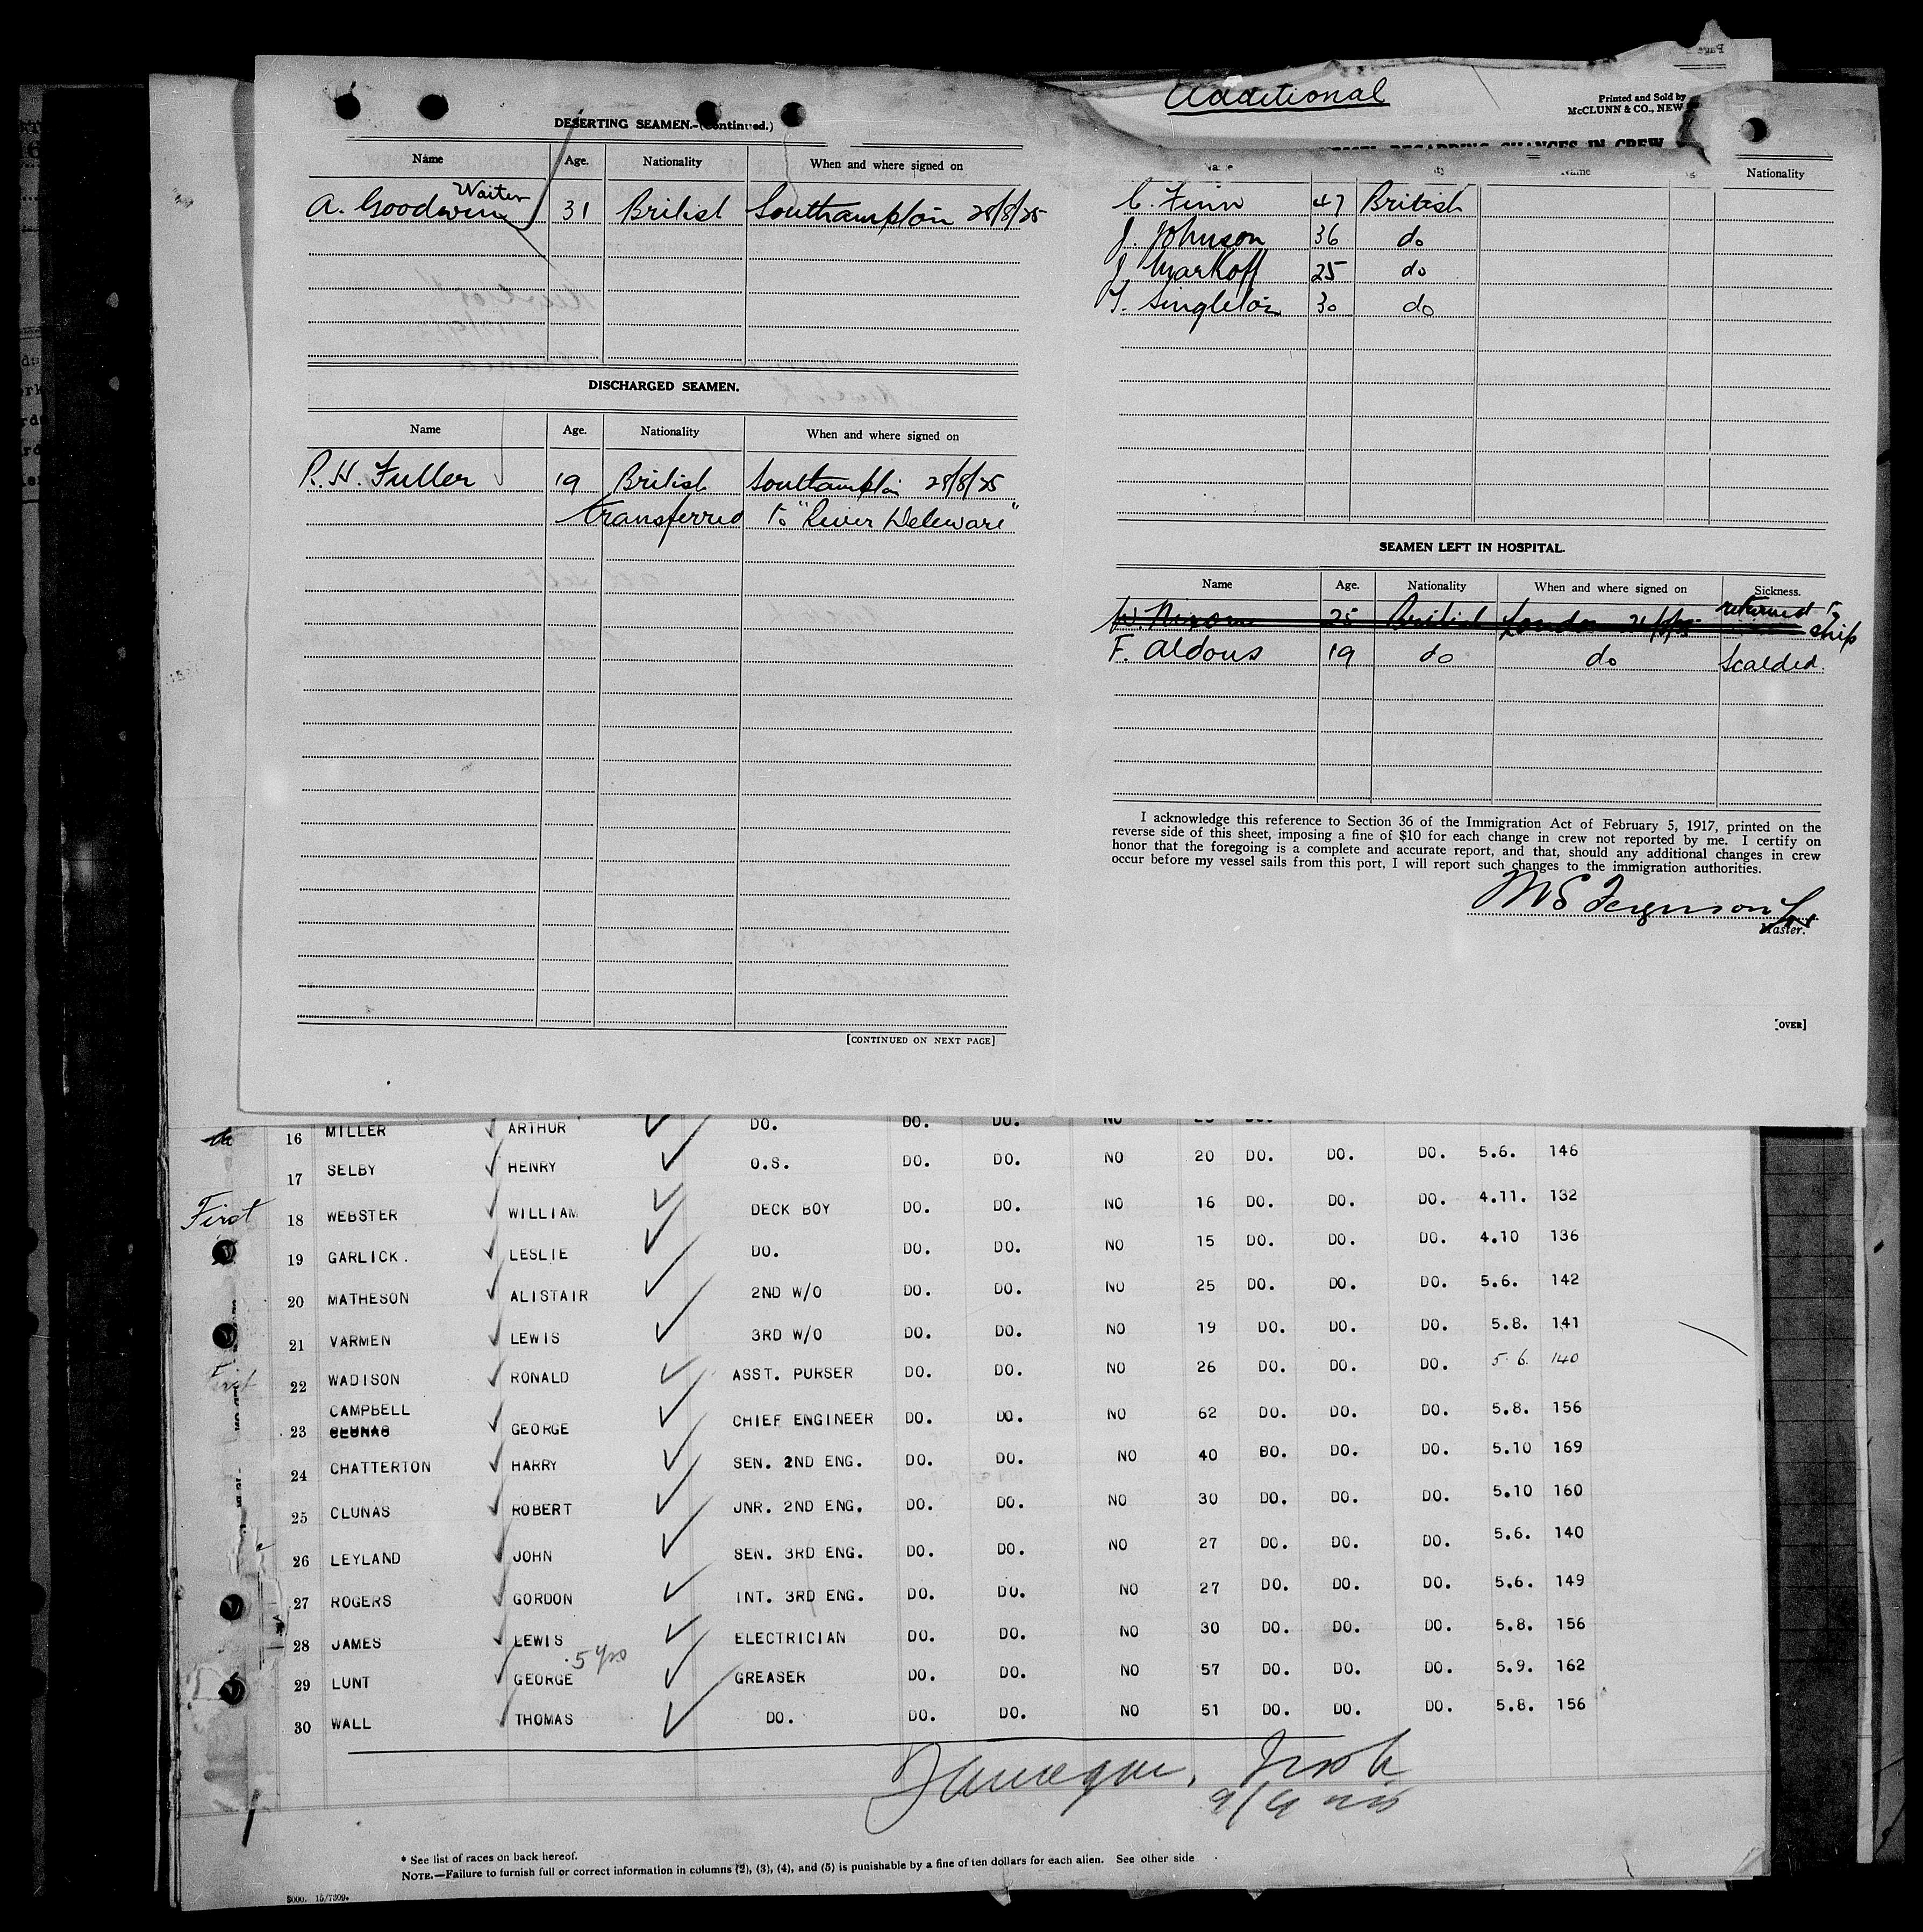 DESERTING SEAMEN.-(Continued.)
Name Age. Nationality When and where signed on
Waiter
A. Goodwin 31 British Southampton 28/8/25
DISCHARGED SEAMEN.
Name Age. Nationality When and where signed on
R. H. Fuller 19 British Southampton 28/8/25
transferred to "River Deleware"
[CONTINUED ON NEXT PAGE]
Additional
Printed and Sold by
McCLUNN & CO., NEW
REGARDING CHANGES IN CREW
Name Name Nationality
C. Finn 47 British
J. Johnson 36 do
J. Markoff 25 do
T. Singleton 30 do
SEAMEN LEFT IN HOSPITAL.
Name Age. Nationality When and where signed on Sickness.
W. Nixon 25 British London returned to ship
F. Aldous 19 do do Scalded
I acknowledge this reference to Section 36 of the Immigration Act of February 5, 1917, printed on the
reverse side of this sheet, imposing a fine of $10 for each change in crew not reported by me. I certify on
honor that the foregoing is a complete and accurate report, and that, should any additional changes in crew
occur before my vessel sails from this port, I will report such changes to the immigration authorities.
Ferguson
Master.
[OVER]
16 MILLER ARTHUR DO. DO. DO. NO
17 SELBY HENRY O.S. DO. DO. NO 20 DO. DO. DO. 5.6. 146
First 18 WEBSTER WILLIAM DECK BOY DO. DO. NO 16 DO. DO. DO. 4.11. 132
19 GARLICK. LESLIE DO. DO. DO. NO 15 DO. DO. DO. 4.10 136
20 MATHESON ALISTAIR 2ND W/O DO. DO. NO 25 DO. DO. DO. 5.6. 142
21 VARMEN LEWIS 3RD W/O DO. DO. NO 19 DO. DO. DO. 5.8. 141
First 22 WADISON RONALD ASST. PURSER DO. DO. NO 26 DO. DO. DO. 5.6. 140
CAMPBELL
23 CLUNAS GEORGE CHIEF ENGINEER DO. DO. NO 62 DO. DO. DO. 5.8. 156
24 CHATTERTON HARRY SEN. 2ND ENG. DO. DO. NO 40 DO. DO. DO. 5.10 169
25 CLUNAS ROBERT JNR. 2ND ENG. DO. DO. NO 30 DO. DO. DO. 5.10 160
26 LEYLAND JOHN SEN. 3RD ENG. DO. DO. NO 27 DO. DO. DO. 5.6. 140
27 ROGERS GORDON INT. 3RD ENG. DO. DO. NO 27 DO. DO. DO. 5.6. 149
28 JAMES LEWIS ELECTRICIAN DO. DO. NO 30 DO. DO. DO. 5.8. 156
5 yrs
29 LUNT GEORGE GREASER DO. DO. NO 57 DO. DO. DO. 5.9. 162
30 WALL THOMAS DO. DO. DO. NO 51 DO. DO. DO. 5.8. 156
* See list of races on back hereof.
NOTE.—Failure to furnish full or correct information in columns (2), (3), (4), and (5) is punishable by a fine of ten dollars for each alien. See other side
3000. 15/7309.